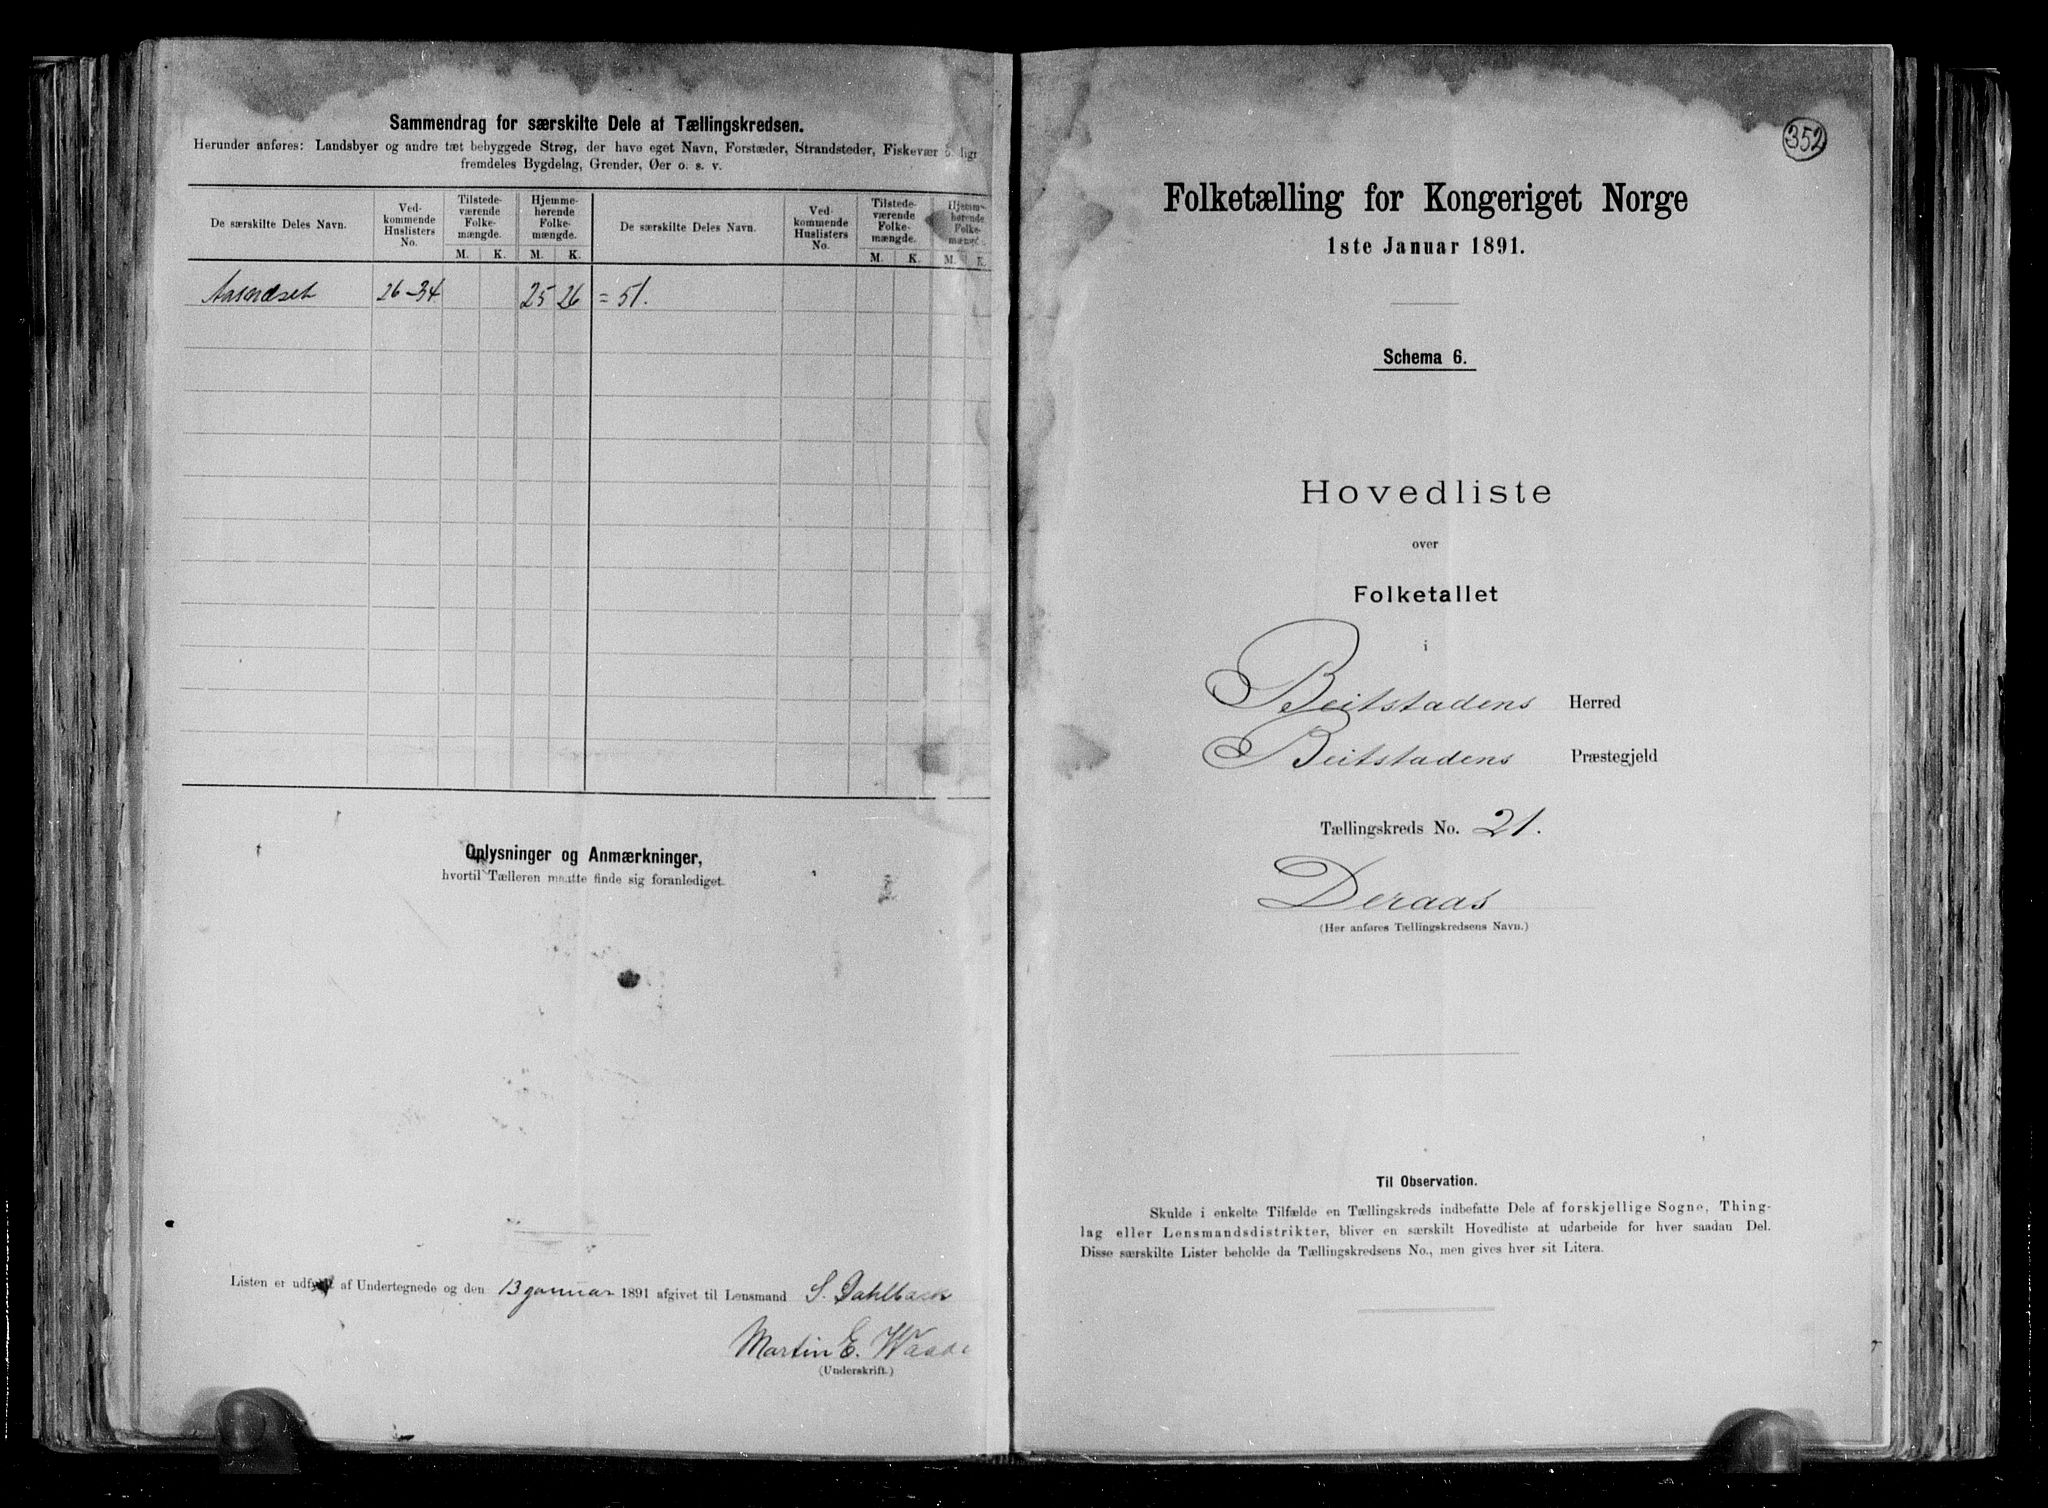 Sammendrag for særskilte Dele af Tællingskredsen.
Herunder anføres: Landsbyer og andre tæt bebyggede Strøg, der have eget Navn, Forstæder, Strandsteder, Fiskevær o. lign.
fremdeles Bygdelag, Grender, Øer o. s. v.
De særskilte Deles Navn. Ved-kommende Huslisters No. Tilstede-værende Folke-mængde. Hjemme-hørende Folke-mængde. De særskilte Deles Navn. Ved-kommende Huslisters No. Tilstede-værende Folke-mængde. Hjemm-hørende Folke-mængde.
M. K. M. K. M. K. M. K.
26-34 25 26 = 51.
Oplysninger og Anmærkninger,
hvortil Tælleren maatte finde sig foranlediget.
Listen er udfyldt af Undertegnede og den 13 januar 1891 afgivet til Lensmand S. Dahlback
Martin E. Waade
(Underskrift.)
352
Folketælling for Kongeriget Norge
1ste Januar 1891.
Schema 6.
Hovedliste
over
Folketallet
i
Beitstadens Herred
Beitstadens Præstegjeld
Tællingskreds No. 21.
Deraas
(Her anføres Tællingskredsens Navn.)
Til Observation.
Skulde i enkelte Tilfælde en Tællingskreds indbefatte Dele af forskjellige Sogne, Thing-
lag eller Lensmandsdistrikter, bliver en særskilt Hovedliste at udarbeide for hver saadan Del.
Disse særskilte Lister beholde da Tællingskredsens No., men gives hver sit Litera.